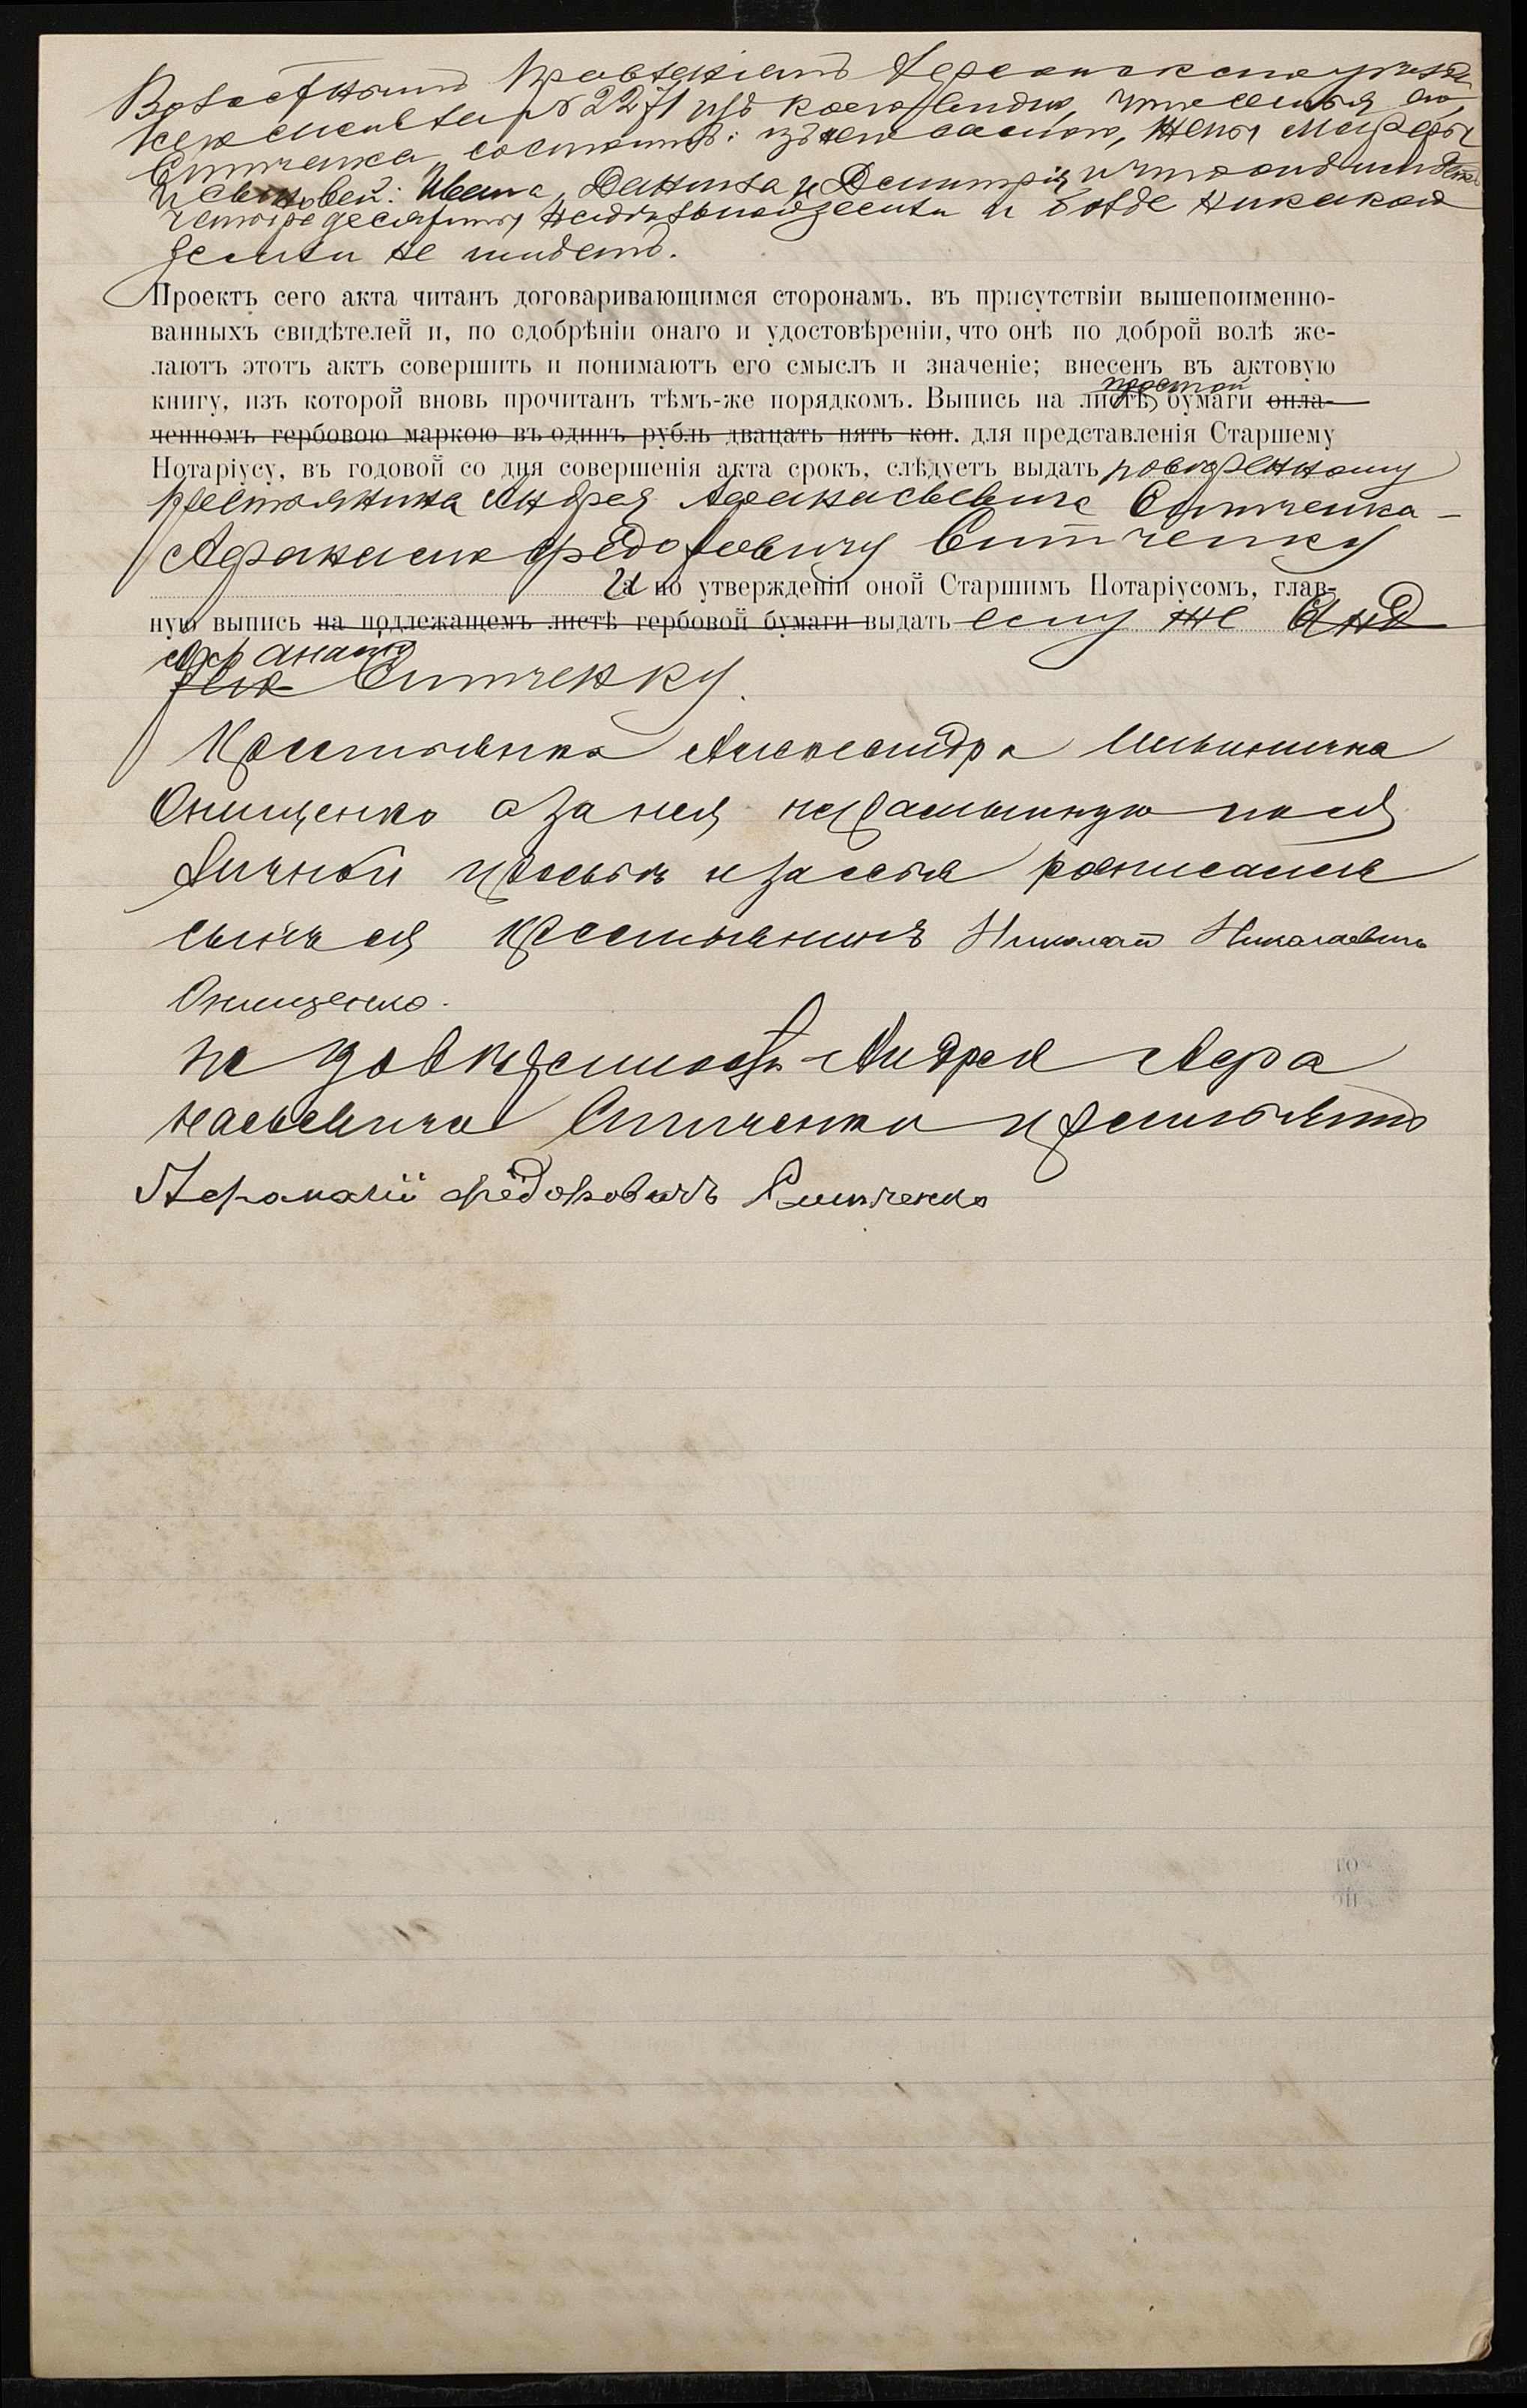 Волостнымъ Правленіемъ Херсонскаго уѣзда
№ 2271 изъ коего видно, что семья его,
Ситченка состоитъ: изъ него самого, жены Марфы
и сыновей: Ивана, Данила и Дмитрія и что онъ имѣетъ
четыре десятины надѣльной земли и болѣе никакой
земли не имѣетъ.
Проектъ сего акта читанъ договаривающимся сторонамъ. въ присутствіи вышепоименно-
ванныхъ свидѣтелей и, по одобрѣніи онаго и удостовѣреніи, что онѣ по доброй волѣ же-
лаютъ этотъ актъ совершить и понимаютъ его смыслъ и значеніе; внесенъ въ актовую
простой
книгу, изъ которой вновь прочитанъ тѣмъ-же порядкомъ. Выпись на листѣ бумаги опла-
ченномъ гербовою маркою въ одинъ рубль двацать пять коп. для представленія Старшему
Нотаріусу, въ годовой со дня совершенія акта срокъ, слѣдуетъ выдать повѣренному
крестьянина Андрея Афанасьевича Ситченка —
Афанасию Фёдоровичу Ситченку
и по утвержденіи оной Старшимъ Нотаріусомъ, глав-
ную выпись на подлежащемъ листѣ гербовой бумаги выдать ему же Анд
Афанасію
рею Ситченку.
Крестьянка Александра Ильинична
Онищенко а за нея неграмотную по ея
личной просьбѣ и за себя росписался
сынъ ея крестьянинъ Николай Николаевичъ
Онищенко.
по довѣренности Андрея Афа
насьевича Ситченка крестьянинъ
Афанасий Фёдоровичъ Ситченко